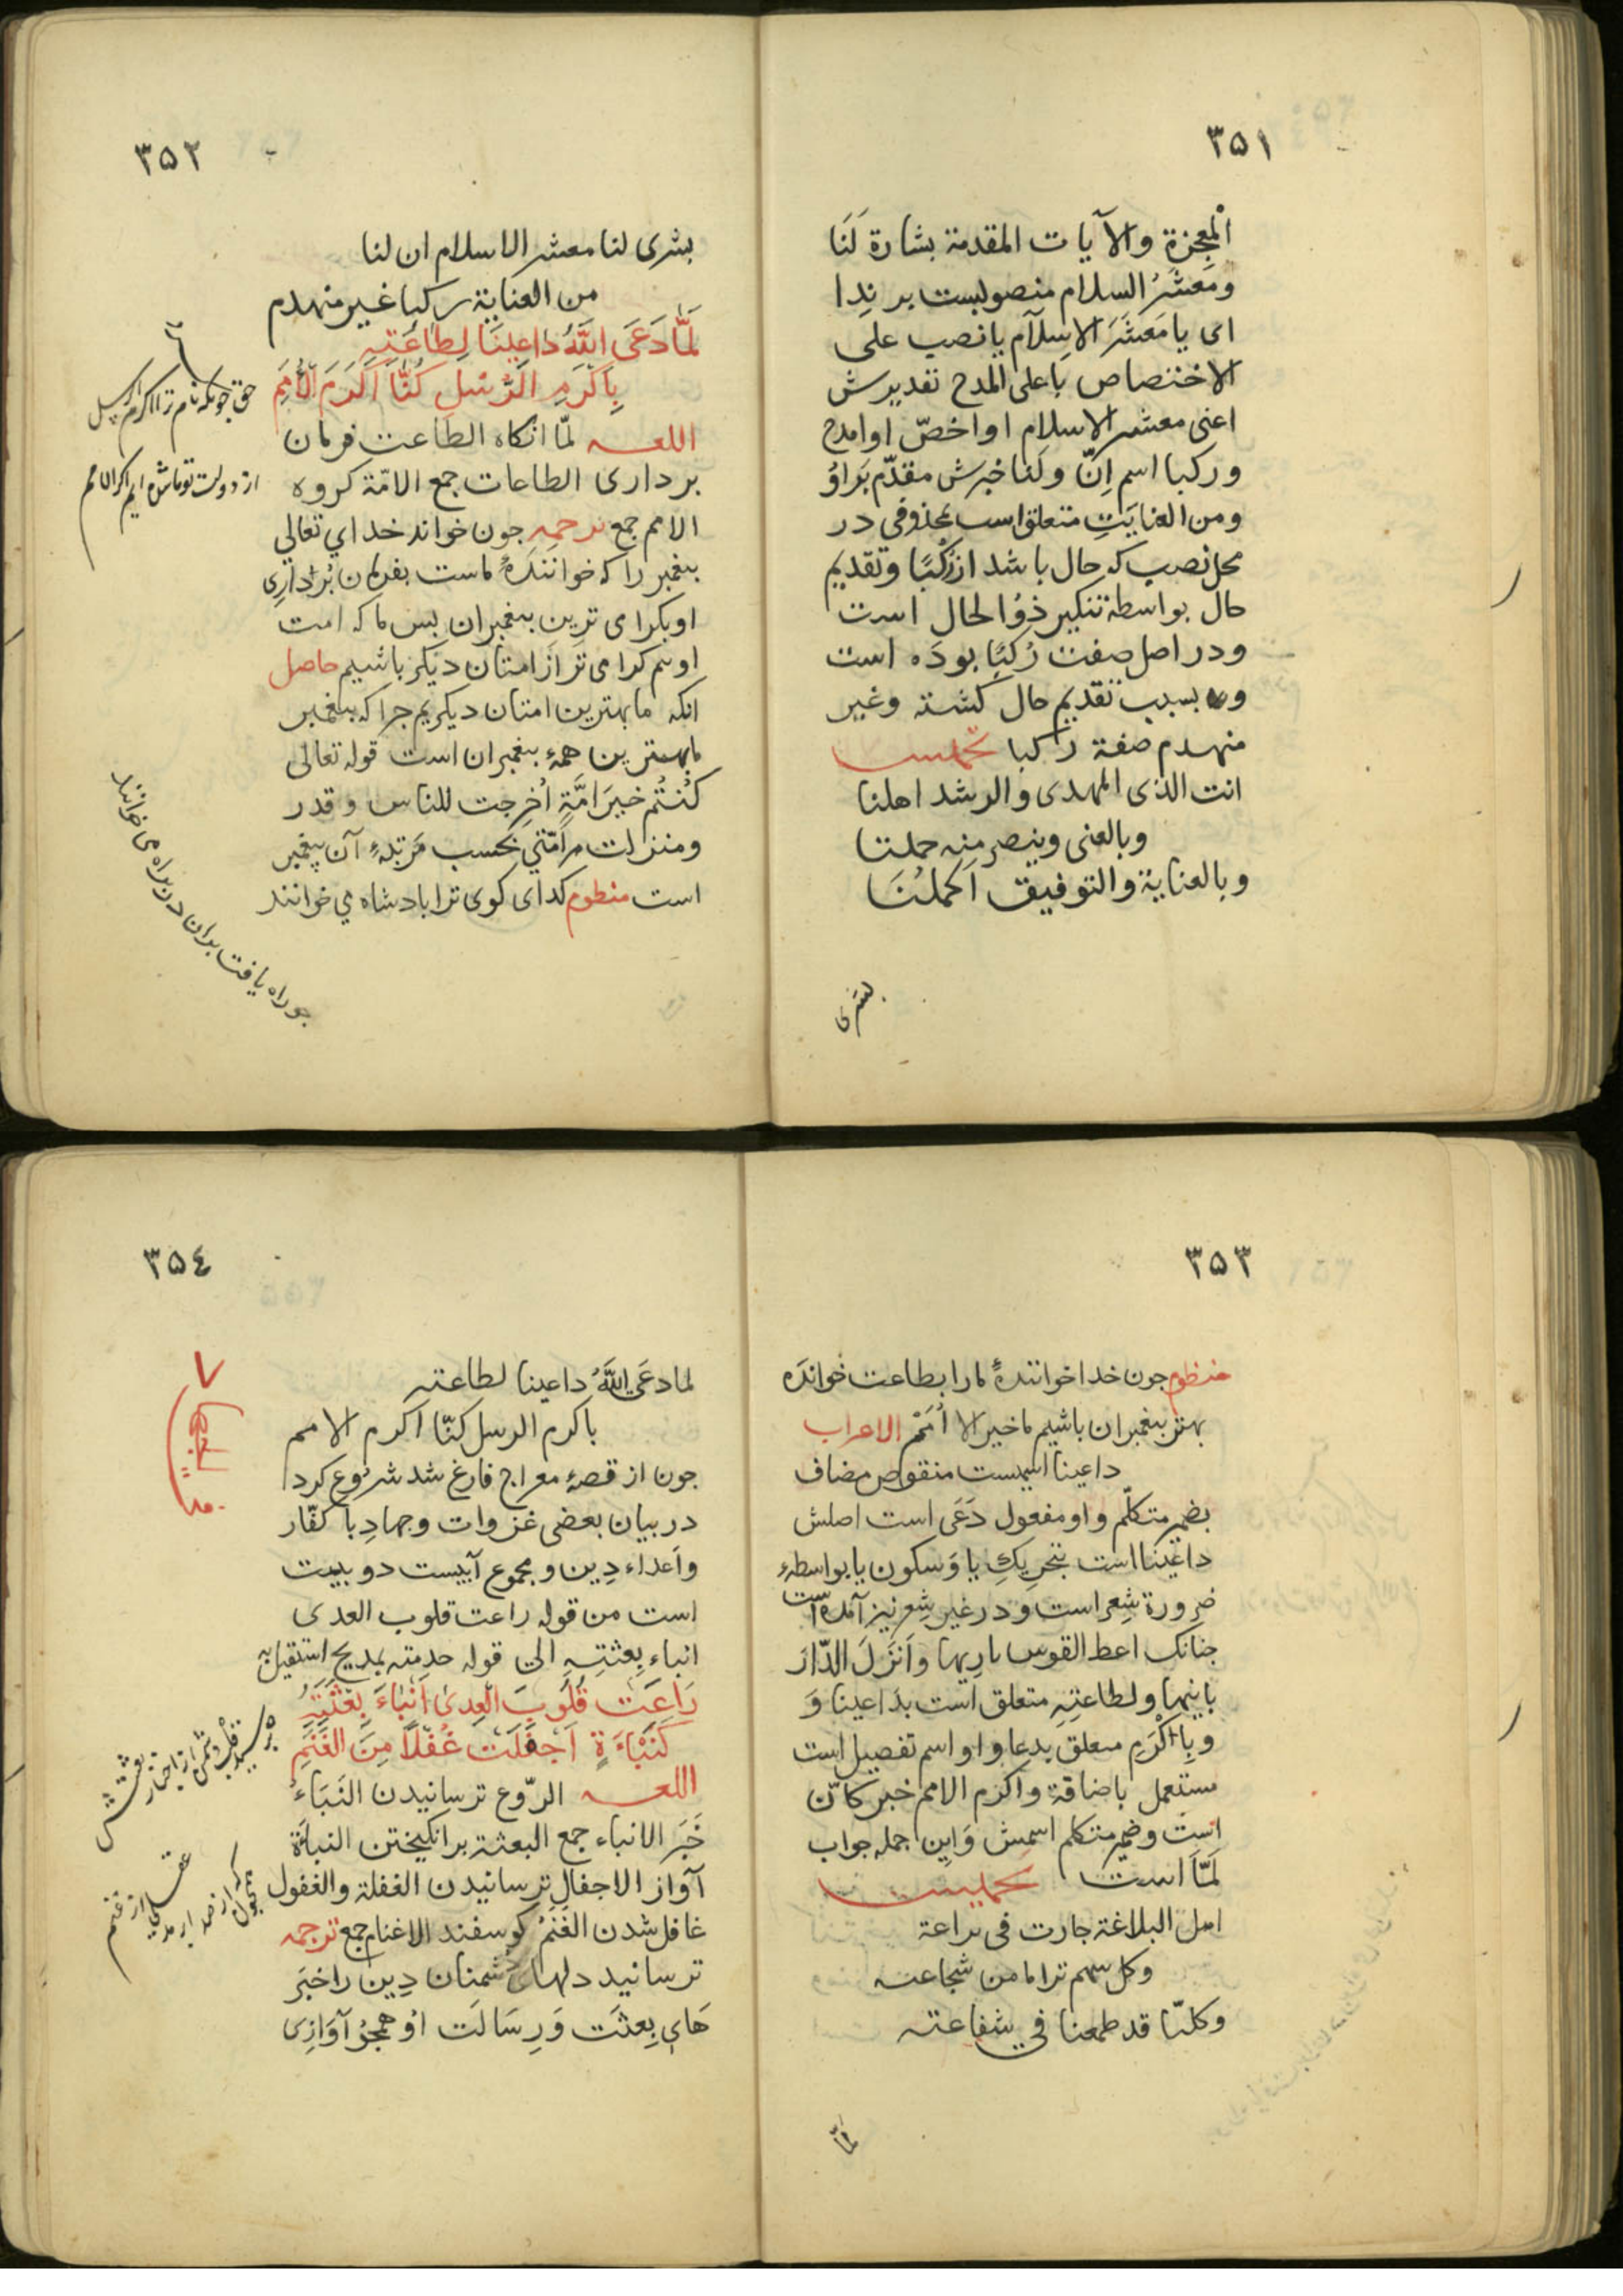 ٣٥١
المعجزة والآيات المقدمة بشارة لَنَا
ومَعشَرُ السلام منصوبست بر نِدا
اى يا مَعشَرَ الاسلام يا نصب على
الاختصاص يا على المدح تقديرش
اعنى معشر الاسلام او اخصّ او امدح
وركنا اسم اِنّ ولَنا خبرش مقدّم بَراوُ
ومن العنايَتِ متعلق است بمحذوفى در
محل نصب كه حال باشد از رُكنًا وتقديم
حال بواسطهٔ تنكير ذوُ الحال است
ودر اصل صفت رُكنًا بوده است
و بسبب تقديم حال كشته وغير
منهدم صفة ركنا تخميس
انت الذى المهدى والرشد اهلنا
وبالغنى وينصر منه حملتا
وبالعناية والتوفيق اَكملُنَا
بشرى
٣٥٢
بشرى لنا معشر الاسلام ان لنا
من العناية ركنا غير منهدم
لَمَّا دَعَى اللَّهُ دَاعِينَا لِطَاعَتِهِ
بِاَكْرَمِ الرُّسْلِ كُنَّا اَكْرَمَ الْأُمَمِ
اللغـــه لمّا انكاه الطاعت فرمان
بردارى الطاعات جمع الامّة كروه
الامم جمع ترجمه جون خواند خداي تعالي
بيغمبر را كه خوانندهٔ ماست بفرمان بُردارى
او بكرامى ترين بيغمبران بس ما كه امت
اوييم كرامى تر از امتان ديكر باشيم حاصل
انكه ما بهترين امتان ديكريم جرا كه بيغمبر
ما بهترين همهٔ بيغمبران است قوله تعالى
كُنتُم خيرَ امَّةٍ اُخرِجت للناس وقدر
ومنزلت هر اُمّتي بحسب مَرتبهٔ آن پيغمبر
است منظوم كداى كوى ترا بادشاه مي خوانند
حق جونكه نام ترا اكرم رسل
از دولت تو ما شده ايم اكرم الامم
جو راه يافت بران در براه مى خوانند
٣٥٣
منظوم جون خدا خوانندهٔ ما را بطاعت خوانده
بهتر بيغمبران باشيم ما خير الاُمَمْ الاعراب
داعينا اسميست منقوص مضاف
بضمير متكلّم و او مفعول دَعَى است اصلش
داعِيَنا است بتحريكِ يا وَسكون يا بواسطهٔ
ضرورة شِعر است وَ در غير شِعر نيز آمده است
جنانك اعط القوس باريها وَاَنزَلَ الدّارَ
بانيها ولطاعتِهِ متعلق است بداعينا وَ
وبِاَكْرَمِ متعلق بدعا و او اسم تفضيل است
مستعمل باضافة واكرم الامم خبر كانّ
است وضمير متكلم اسمش وَاين جمله جواب
لَمّا است تخميس
اهل البلاغة جارت فى براعة
وكل سهم ترانا من شجاعته
وكلنّا قد طمعنا في شفاعته
لمّا
٣٥٤
لما دعَى اللَّهُ داعينا لطاعته
باكرم الرسل كنّا اكرم الامم
جون از قصهٔ معراج فارغ شد شروع كرد
در بيان بعضى غزوات وجهادِ با كفّار
واَعداء دِين ومجموع آبيست دو بيت
است من قوله راعت قلوب العدى
انباء بِعثتِهِ الى قوله خدمته بمديح استقيل به
رَاعَتْ قُلُوبَ الْعِدَى اَنْبَاءُ بِعْثَتِهِ
كَنَبْأَةٍ اَجْفَلَتْ غُفْلًا مِنَ الْغَنَمِ
اللغـــه الرّوع ترسانيدن النَبَاءُ
خَبَر الانباء جمع البعثة بر انكيختن النباة
آواز الاجفال ترسانيدن الغفلة والغفول
غافل شدن الغَنَمُ كوسفند الاغنام جمع ترجمه
ترسانيد دلهاى دُشمنان دِين را خبَر
هَاى بِعثَت وَرِسَالَت اوُ همجوُ آوَازِى